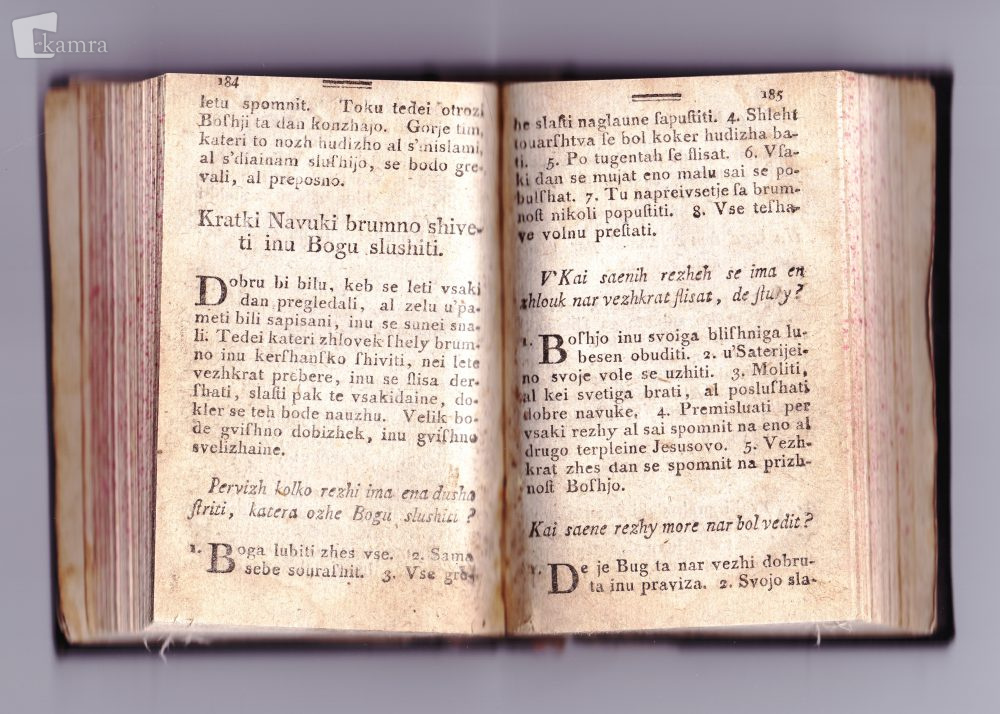 kamra
184
letu spomnit. Toku tedei otrozi
Boſhji ta dan konzhajo. Gorje tim,
kateri to nozh hudizho al s'mislami,
al s'diainam sluſhijo, se bodo gre-
vali, al preposno.
Kratki Navuki brumno shive-
ti inu Bogu slushiti.
Dobru bi bilu, keb se leti vsaki
dan pregledali, al zelu u'pa-
meti bili sapisani, inu se sunei sna-
li. Tedei kateri zhlovek ſhely brum-
no inu kerſhanſko ſhiviti, nei lete
vezhkrat prebere, inu se ſlisa der-
ſhati, slaſti pak te vsakidaine, do-
kler se teh bode nauzhu. Velik bo-
de gviſhno dobizhek, inu gviſhno
svelizhaine.
Pervizh kolko rezhi ima ena dusha
ſtriti, katera ozhe Bogu slushiti?
1. Boga lubiti zhes vse. 2. Sama
sebe souraſhit. 3. Vse gre-
185
he slaſti naglaune ſapuſtiti. 4. Shleht
touarſhtva ſe bol koker hudizha ba-
ti. 5. Po tugentah ſe ſlisat. 6. Vſa-
ki dan se mujat eno malu sai se po-
bulſhat. 7. Tu napreivsetje ſa brum-
noſt nikoli popuſtiti. 8. Vse teſha-
ve volnu preſtati.
V'Kai saenih rezheh se ima en
zhlouk nar vezhkrat ſlisat, de ſtury?
1. Boſhjo inu svoiga bliſhniga lu-
besen obuditi. 2. u'Saterijei-
no svoje vole se uzhiti. 3. Moliti,
al kei svetiga brati, al posluſhati
dobre navuke. 4. Premisluati per
vsaki rezhy al sai spomnit na eno al
drugo terpleine Jesusovo. 5. Vezh-
krat zhes dan se spomnit na prizh-
noſt Boſhjo.
Kai saene rezhy more nar bol vedit?
1. De je Bug ta nar vezhi dobru-
ta inu praviza. 2. Svojo sla-